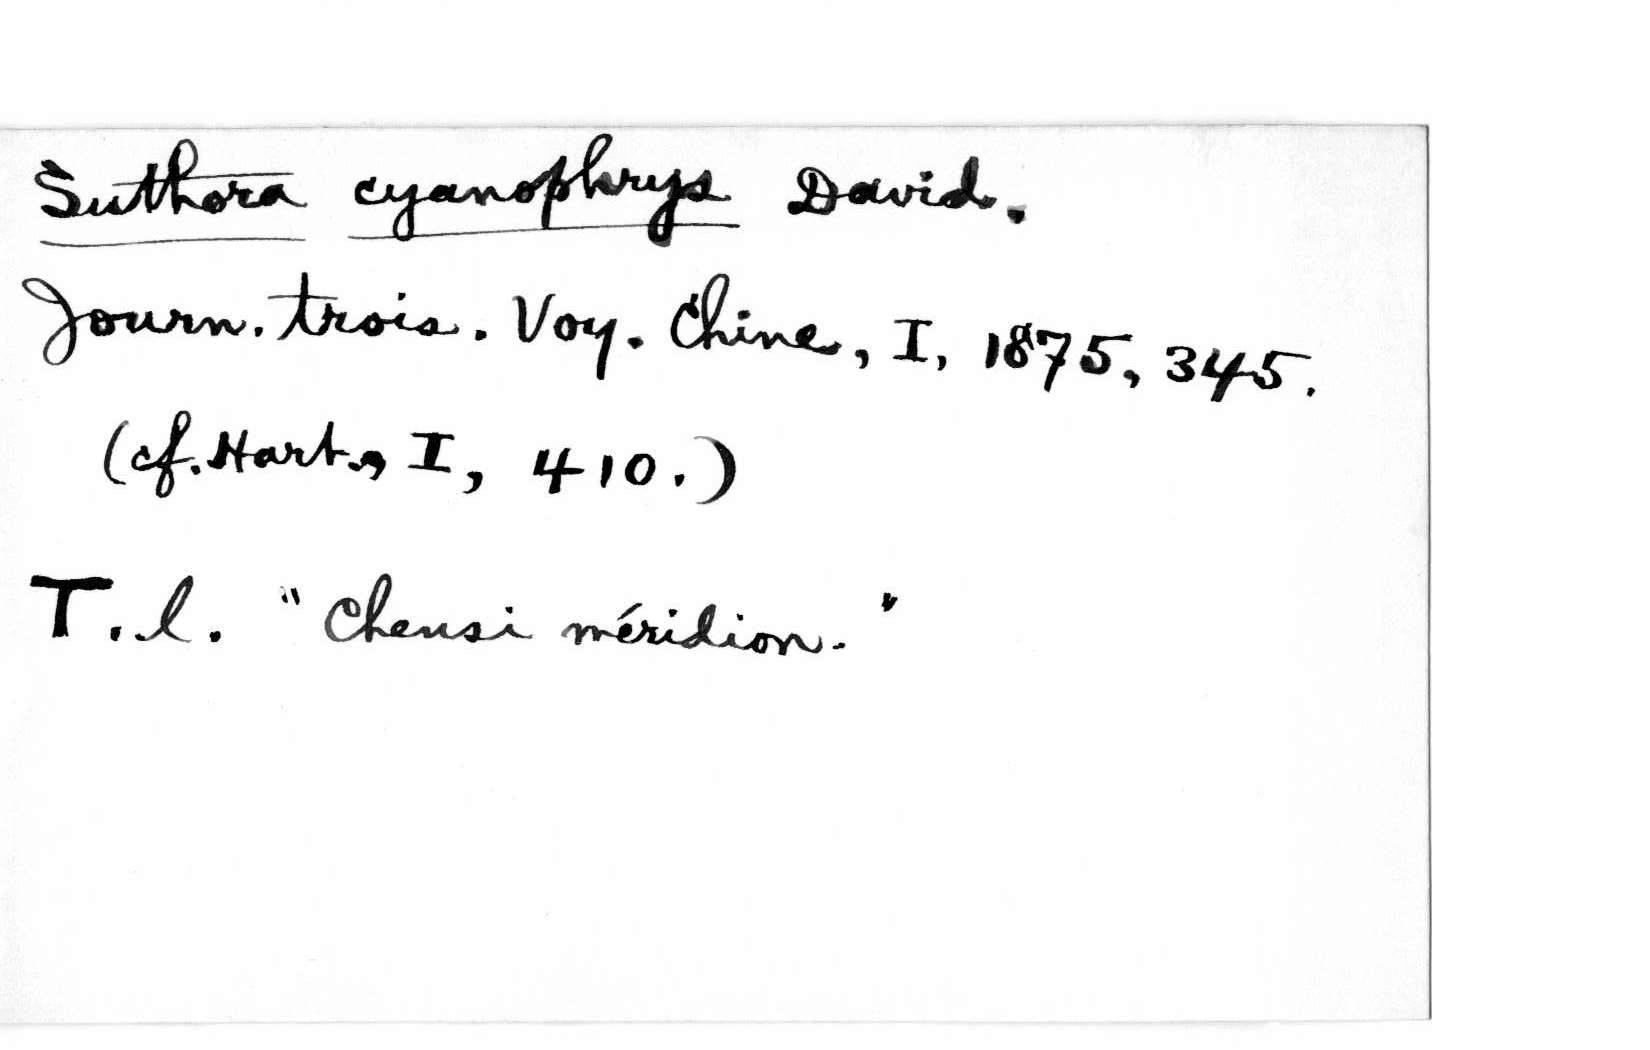 Suthora cyanophrys David.
Journ. trois. Voy. Chine, I, 1875, 345.
(cf. Hart., I, 410.)
T. l. "Chensi méridion."